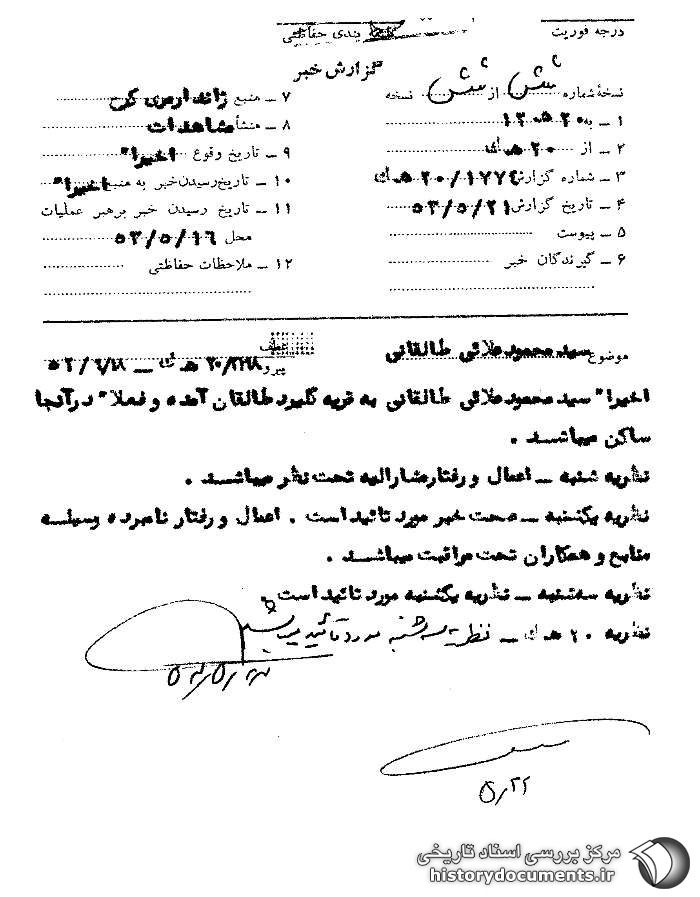 درجه فوریت
طبقه بندی حفاظتی
گزارش خبر
نسخهٔ شماره شش از شش نسخه
۱ ـ به ۲۰ ه ۱۲
۲ ـ از ۲۰ ه ك
۳ ـ شماره گزارش ۲۰/۱۷۷۴ ه ك
۴ ـ تاریخ گزارش ۵۳/۵/۲۱
۵ ـ پیوست
۶ ـ گیرندگان خبر
۷ ـ منبع ژاندارمری کرج
۸ ـ منشأ مشاهدات
۹ ـ تاریخ وقوع اخیرا"
۱۰ ـ تاریخ رسیدن خبر به منبع اخیرا"
۱۱ ـ تاریخ رسیدن خبر برهبر عملیات
محل ۵۳/۵/۱۶
۱۲ ـ ملاحظات حفاظتی
موضوع سید محمود علائی طالقانی
عطف
پیرو ه ك ـ
اخیرا" سید محمود علائی طالقانی به قریه گلیرد طالقان آمده و فعلا" در آنجا
ساکن میباشد .
نظریه شنبه ـ اعمال و رفتار مشارالیه تحت نظر میباشد .
نظریه یکشنبه ـ صحت خبر مورد تائید است . اعمال و رفتار نامبرده وسیله
منابع و همکاران تحت مراقبت میباشد .
نظریه سهشنبه ـ نظریه یکشنبه مورد تائید است .
نظریه ۲۰ ه ك ـ نظریه سه شنبه مورد تأئید میباشد
۵/۲۲
مرکز بررسی اسناد تاریخی
historydocuments.ir